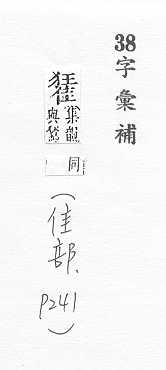 38字彙補
集韻
與鵟
同
(佳部、P241)